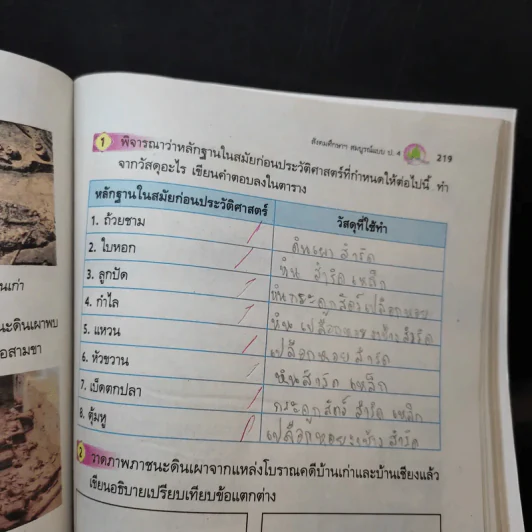 สังคมศึกษาฯ สมบูรณ์แบบ ป. 4 219
1 พิจารณาว่าหลักฐานในสมัยก่อนประวัติศาสตร์ที่กำหนดให้ต่อไปนี้ ทำ
จากวัสดุอะไร เขียนคำตอบลงในตาราง
หลักฐานในสมัยก่อนประวัติศาสตร์ วัสดุที่ใช้ทำ
1. ถ้วยชาม ดินเผา สำริด
2. ใบหอก หิน สำริด เหล็ก
3. ลูกปัด หิน กระดูกสัตว์ เปลือกหอย
4. กำไล หิน เปลือกหอย สำริด
5. แหวน เปลือกหอย สำริด
6. หัวขวาน หิน สำริด เหล็ก
7. เบ็ดตกปลา กระดูกสัตว์ สำริด เหล็ก
8. ตุ้มหู เปลือกหอย สำริด
2 วาดภาพภาชนะดินเผาจากแหล่งโบราณคดีบ้านเก่าและบ้านเชียงแล้ว
เขียนอธิบายเปรียบเทียบข้อแตกต่าง
นเก่า
นะดินเผาพบ
อสามขา